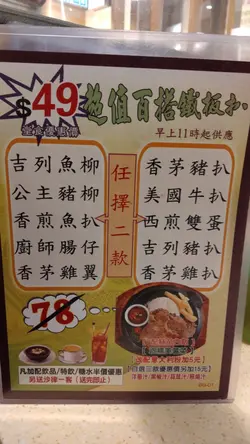 $49
堂食優惠價
超值百搭鐵板扒
早上11時起供應
吉列魚柳
公主豬柳
香煎魚扒
廚師腸仔
香茅雞翼
任擇二款
香茅豬扒
美國牛扒
西煎雙蛋
吉列豬扒
香茅雞扒
78
凡加配飲品/特飲/糖水半價優惠
另送沙律一客(送完即止)